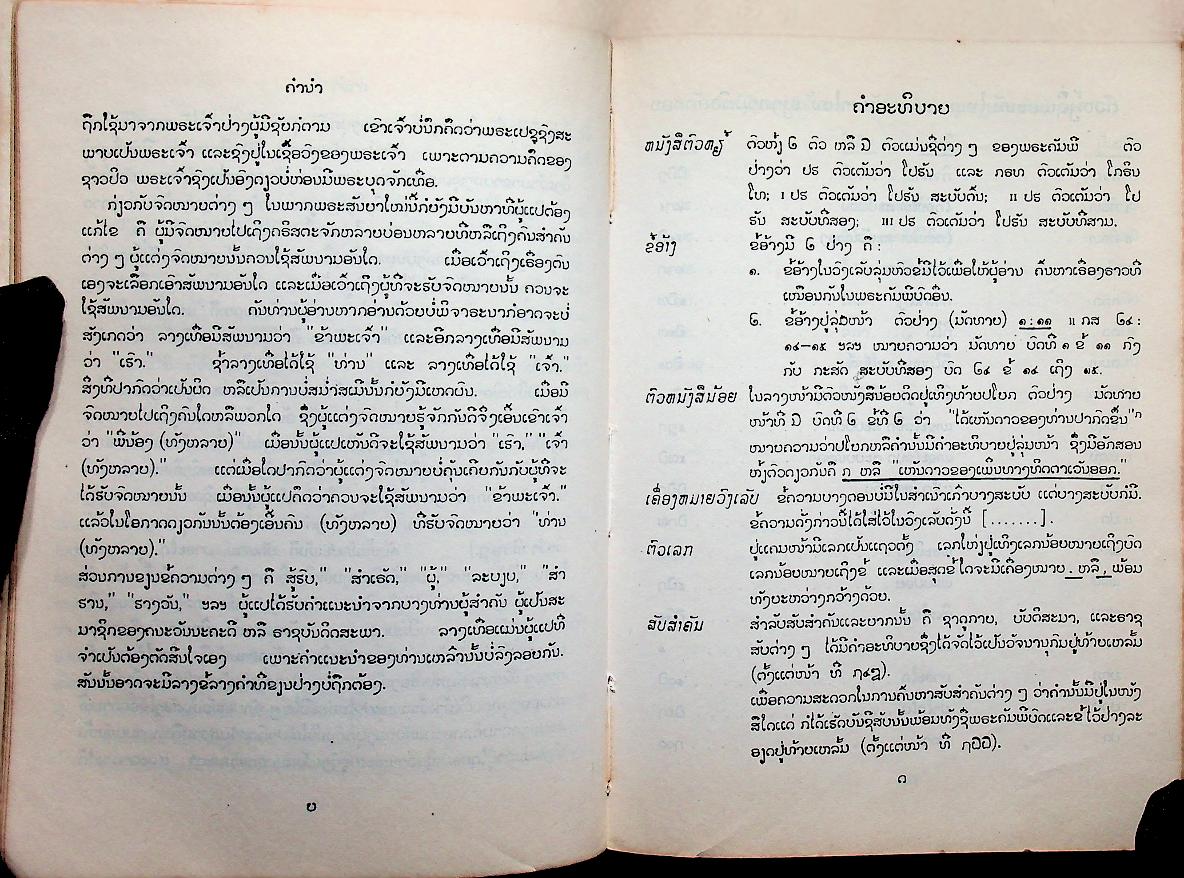 ຄຳນຳ
ຖືກໃຊ້ມາຈາກພຣະເຈົ້າຢ່າງຜູ້ມີຊັຍກໍຕາມ ເຂົາເຈົ້າບໍ່ນຶກຄຶດວ່າພຣະເຢຊູຊົງສະ
ພາບເປັນພຣະເຈົ້າ ແລະຊົງຢູ່ໃນເຊື້ອວົງຂອງພຣະເຈົ້າ ເພາະຕາມຄວາມຄຶດຂອງ
ຊາວຢິວ ພຣະເຈົ້າຊົງເປັນອົງດຽວບໍ່ຫ່ອນມີພຣະບຸດຈັກເທື່ອ.
ກ່ຽວກັບຈົດໝາຍຕ່າງ ໆ ໃນພາກພຣະສັນຍາໃໝ່ນີ້ກໍຍັງມີບັນຫາທີ່ຜູ້ແປຕ້ອງ
ແກ້ໄຂ ຄື ຜູ້ມີຈົດໝາຍໄປເຖິງຄຣິສຕະຈັກຫລາຍບ່ອນຫລາຍທີ່ຫລືເຖິງຄົນສຳຄັນ
ຕ່າງ ໆ ຜູ້ແຕ່ງຈົດໝາຍນັ້ນຄວນໃຊ້ສັພນາມອັນໃດ. ເມື່ອເວົ້າເຖິງເຣື່ອງຕົນ
ເອງຈະເລືອກເອົາສັພນາມອັນໃດ ແລະເມື່ອເວົ້າເຖິງຜູ້ທີ່ຈະຮັບຈົດໝາຍນັ້ນ ຄວນຈະ
ໃຊ້ສັພນາມອັນໃດ. ຄັນທ່ານຜູ້ອ່ານຫາກອ່ານດ້ວຍບໍ່ພິຈາຣະນາກໍອາດຈະບໍ່
ສັງເກດວ່າ ລາງເທື່ອມີສັພນາມວ່າ "ຂ້າພະເຈົ້າ" ແລະອີກລາງເທື່ອມີສັພນາມ
ວ່າ "ເຮົາ." ຊ້ຳລາງເທື່ອໄດ້ໃຊ້ "ທ່ານ" ແລະ ລາງເທື່ອໄດ້ໃຊ້ "ເຈົ້າ."
ສິ່ງທີ່ປາກົດວ່າເປັນຜິດ ຫລືເປັນການບໍ່ສມ່ຳສເມີນັ້ນກໍຍັງມີເຫດຜົນ. ເມື່ອມີ
ຈົດໝາຍໄປເຖິງຄົນໃດຫລືພວກໃດ ຊຶ່ງຜູ້ແຕ່ງຈົດໝາຍຮູ້ຈັກກັນດີຈຶ່ງເອີ້ນເຂົາເຈົ້າ
ວ່າ "ພີ່ນ້ອງ (ທັງຫລາຍ)" ເມື່ອນັ້ນຜູ້ແປເຫັນດີຈະໃຊ້ສັພນາມວ່າ "ເຮົາ," "ເຈົ້າ
(ທັງຫລາຍ)." ແຕ່ເມື່ອໃດປາກົດວ່າຜູ້ແຕ່ງຈົດໝາຍບໍ່ຄຸ້ນເຄີຍກັນກັບຜູ້ທີ່ຈະ
ໄດ້ຮັບຈົດໝາຍນັ້ນ ເມື່ອນັ້ນຜູ້ແປຄຶດວ່າຄວນຈະໃຊ້ສັພນາມວ່າ "ຂ້າພະເຈົ້າ."
ແລ້ວໃນໂອກາດດຽວກັນນັ້ນຕ້ອງເອີ້ນຄົນ (ທັງຫລາຍ) ທີ່ຮັບຈົດໝາຍວ່າ "ທ່ານ
(ທັງຫລາຍ)."
ສ່ວນການຂຽນຂໍ້ຄວາມຕ່າງ ໆ ຄື ສູ້ຣົບ," "ສຳເຣັດ," "ຜູ້," "ລະບຽບ," "ສຳ
ຣານ," "ຣາງວັນ," ຯລຯ ຜູ້ແປໄດ້ຮັບຄຳແນະນຳຈາກບາງທ່ານຜູ້ສຳຄັນ ຜູ້ເປັນສະ
ມາຊິກຂອງຄນະວັນນະຄະດີ ຫລື ຣາຊບັນດິດສະພາ. ລາງເທື່ອແມ່ນຜູ້ແປທີ່
ຈຳເປັນຕ້ອງຕັດສິນໃຈເອງ ເພາະຄຳແນະນຳຂອງທ່ານເຫລົ່ານັ້ນບໍ່ລົງລອຍກັນ.
ສັນນັ້ນອາດຈະມີລາງຂໍ້ລາງຄຳທີ່ຂຽນຢ່າງບໍ່ຖືກຕ້ອງ.
ຍ
ຄຳອະທິບາຍ
ໜັງສືຕົວຫຽໍ້ ຕົວຫັ້ງ ໒ ຕົວ ຫລື ໓ ຕົວແມ່ນຊື່ຕ່າງ ໆ ຂອງພຣະຄັມພີ ຕົວ
ຢ່າງວ່າ ປຣ ຕົວເຕັມວ່າ ໂຢຮັນ ແລະ ກຣທ ຕົວເຕັມວ່າ ໂກຣິນ
ໂທ; I ປຣ ຕົວເຕັມວ່າ ໂຢຮັນ ສະບັບຕົ້ນ; II ປຣ ຕົວເຕັມວ່າ ໂຢ
ຮັນ ສະບັບທີສອງ; III ປຣ ຕົວເຕັມວ່າ ໂຢຮັນ ສະບັບທີສາມ.
ຂໍ້ອ້າງ ຂໍ້ອ້າງມີ ໒ ຢ່າງ ຄື:
໑. ຂໍ້ອ້າງໃນວົງເລັບລຸ່ມຫົວຂໍ້ມີໄວ້ເພື່ອໃຫ້ຜູ້ອ່ານ ຄົ້ນຫາເຣື່ອງຣາວທີ່
ເໝືອນກັນໃນພຣະຄັມພີບົດອື່ນ.
໒. ຂໍ້ອ້າງຢູ່ລຸ່ມໜ້າ ຕົວຢ່າງ (ມັດທາຍ) ໑:໑໑ II ກສ ໒໔:
໑໔—໑໕ ຯລຯ ໝາຍຄວາມວ່າ ມັດທາຍ ບົດທີ ໑ ຂໍ້ ໑໑ ກົງ
ກັບ ກະສັດ ສະບັບທີສອງ ບົດ ໒໔ ຂໍ້ ໑໔ ເຖິງ ໑໕.
ຕົວໜັງສືນ້ອຍ ໃນລາງໜ້າມີຕົວໜັງສືນ້ອຍຕິດຢູ່ເທິງທ້າຍປໂຍກ ຕົວຢ່າງ ມັດທາຍ
ໜ້າທີ ໓ ບົດທີ ໒ ຂໍ້ທີ ໒ ວ່າ "ໄດ້ເຫັນດາວຂອງທ່ານປາກົດຂຶ້ນ"ກ
ໝາຍຄວາມວ່າປໂຍກຫລືຄຳນັ້ນມີຄຳອະທິບາຍຢູ່ລຸ່ມໜ້າ ຊຶ່ງມີອັກສອນ
ຫັ້ງຕົດດຽວກັນຄື ກ ຫລື "ເຫັນດາວຂອງເພິ່ນທາງທິດຕາເວັນອອກ."
ເຄື່ອງໝາຍວົງເລັບ ຂໍ້ຄວາມບາງຕອນບໍ່ມີໃນສຳເນົາເກົ່າບາງສະບັບ ແຕ່ບາງສະບັບກໍມີ.
ຂໍ້ຄວາມດັ່ງກ່າວນີ້ໄດ້ໃສ່ໄວ້ໃນວົງເລັບດັ່ງນີ້ [.......].
ຕົວເລກ ຢູ່ແຄມໜ້າມີເລກເປັນແຖວຕັ້ງ ເລກໃຫຍ່ຢູ່ເທິງເລກນ້ອຍໝາຍເຖິງບົດ
ເລກນ້ອຍໝາຍເຖິງຂໍ້ ແລະເມື່ອສຸດຂໍ້ໃດຈະມີເຄື່ອງໝາຍ . ຫລື , ພ້ອມ
ທັງຍະຫວ່າງກວ້າງດ້ວຍ.
ສັບສຳຄັນ ສຳລັບສັບສຳຄັນແລະຍາກນັ້ນ ຄື ຊາດູກາຍ, ບັບຕິສະມາ, ແລະຣາຊ
ສັບຕ່າງ ໆ ໄດ້ມີຄຳອະທິບາຍຊຶ່ງໄດ້ຈັດໄວ້ເປັນວັຈນານຸກົມຢູ່ທ້າຍເຫລັ້ມ
(ຕັ້ງແຕ່ໜ້າ ທີ ໗໔໘).
ເພື່ອຄວາມສະດວກໃນການຄົ້ນຫາສັບສຳຄັນຕ່າງ ໆ ວ່າຄຳນັ້ນມີຢູ່ໃນໜັງ
ສືໃດແດ່ ກໍໄດ້ເຮັດບັນຊີສັບນັ້ນພ້ອມທັງຊື່ພຣະຄັມພີບົດແລະຂໍ້ໄວ້ຢ່າງລະ
ອຽດຢູ່ທ້າຍເຫລັ້ມ (ຕັ້ງແຕ່ໜ້າ ທີ ໗໖໖).
ດ